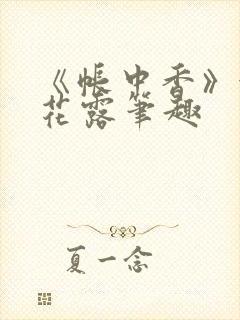 《帐中香》
花露笔趣
夏一念